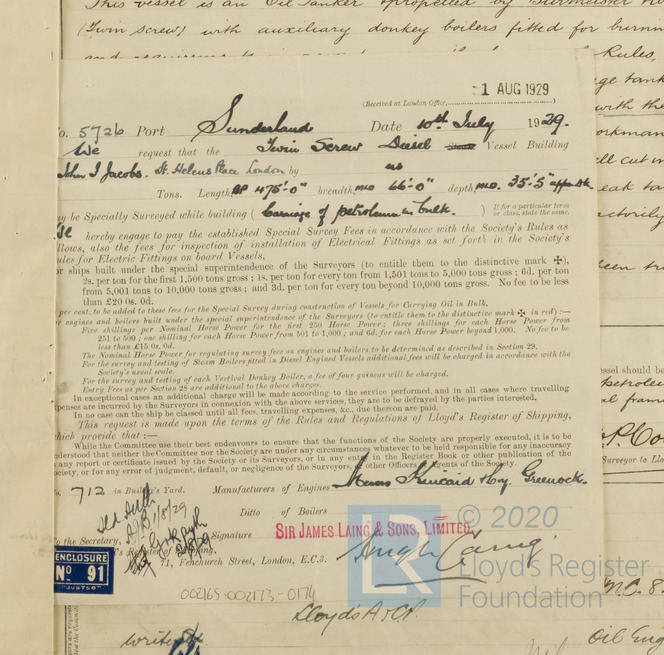 This vessel is an Oil Tanker propelled by Burmeister
(Twin screw) with auxiliary donkey boilers fitted for burn
Rules,
1 AUG 1929
(Received at London Office,
No. 5726 Port Sunderland Date 10th July 1929.
We request that the Twin Screw Diesel Steam Vessel Building
John I Jacobs. St. Helens Place London by us
Tons. Length BP 475'-0" breadth MLD 66'-0" depth MLD. 35'-5" upper Dk.
may be Specially Surveyed while building ( Carriage of petroleum in bulk. ) If for a particular term
or class, state the same.
We hereby engage to pay the established Special Survey Fees in accordance with the Society's Rules as
llows, also the fees for inspection of installation of Electrical Fittings as set forth in the Society's
ules for Electric Fittings on board Vessels,
or ships built under the special superintendence of the Surveyors (to entitle them to the distinctive mark ✠),
2s. per ton for the first 1,500 tons gross ; 1s. per ton for every ton from 1,501 tons to 5,000 tons gross ; 6d. per ton
from 5,001 tons to 10,000 tons gross ; and 3d. per ton for every ton beyond 10,000 tons gross. No fee to be less
than £20 0s. 0d.
per cent. to be added to these fees for the Special Survey during construction of Vessels for Carrying Oil in Bulk.
r engines and boilers built under the special superintendence of the Surveyors (to entitle them to the distinctive mark ✠ in red) :—
Five shillings per Nominal Horse Power for the first 250 Horse Power ; three shillings for each Horse Power from
251 to 500 ; one shilling for each Horse Power from 501 to 1,000 ; and 6d. for each Horse Power beyond 1,000. No fee to be
less than £15 0s. 0d.
The Nominal Horse Power for regulating survey fees on engines and boilers to be determined as described in Section 29.
For the survey and testing of Steam Boilers fitted in Diesel Engined Vessels additional fees will be charged in accordance with the
Society's usual scale.
For the survey and testing of each Vertical Donkey Boiler, a fee of four guineas will be charged.
Entry Fees as per Section 28 are additional to the above charges.
In exceptional cases an additional charge will be made according to the service performed, and in all cases where travelling
penses are incurred by the Surveyors in connexion with the above services, they are to be defrayed by the parties interested.
In no case can the ship be classed until all fees, travelling expenses, &c., due thereon are paid.
This request is made upon the terms of the Rules and Regulations of Lloyd's Register of Shipping,
hich provide that :—
While the Committee use their best endeavours to ensure that the functions of the Society are properly executed, it is to be
nderstood that neither the Committee nor the Society are under any circumstances whatever to be held responsible for any inaccuracy
any report or certificate issued by the Society or its Surveyors, or in any entry in the Register Book or other publication of the
ociety, or for any error of judgment, default, or negligence of the Surveyors, or other Officers or Agents of the Society.
No. 712 in Builder's Yard. Manufacturers of Engines Messrs Kincaid & Coy. Greenock.
Ditto of Boilers
SIR JAMES LAING & SONS, LIMITED.
Signature Hugh Laing
To the Secretary,
's Register of Shipping,
71, Fenchurch Street, London, E.C.3.
ENCLOSURE
No 91
"JUSTSO"
002165-002173-0174
Lloyd's
© 2020
LR
Lloyd's Register
Foundation
ge tank
with the
orkman
eak tan
essel should be
petroleu
Surveyor to Ll
Oil Eng